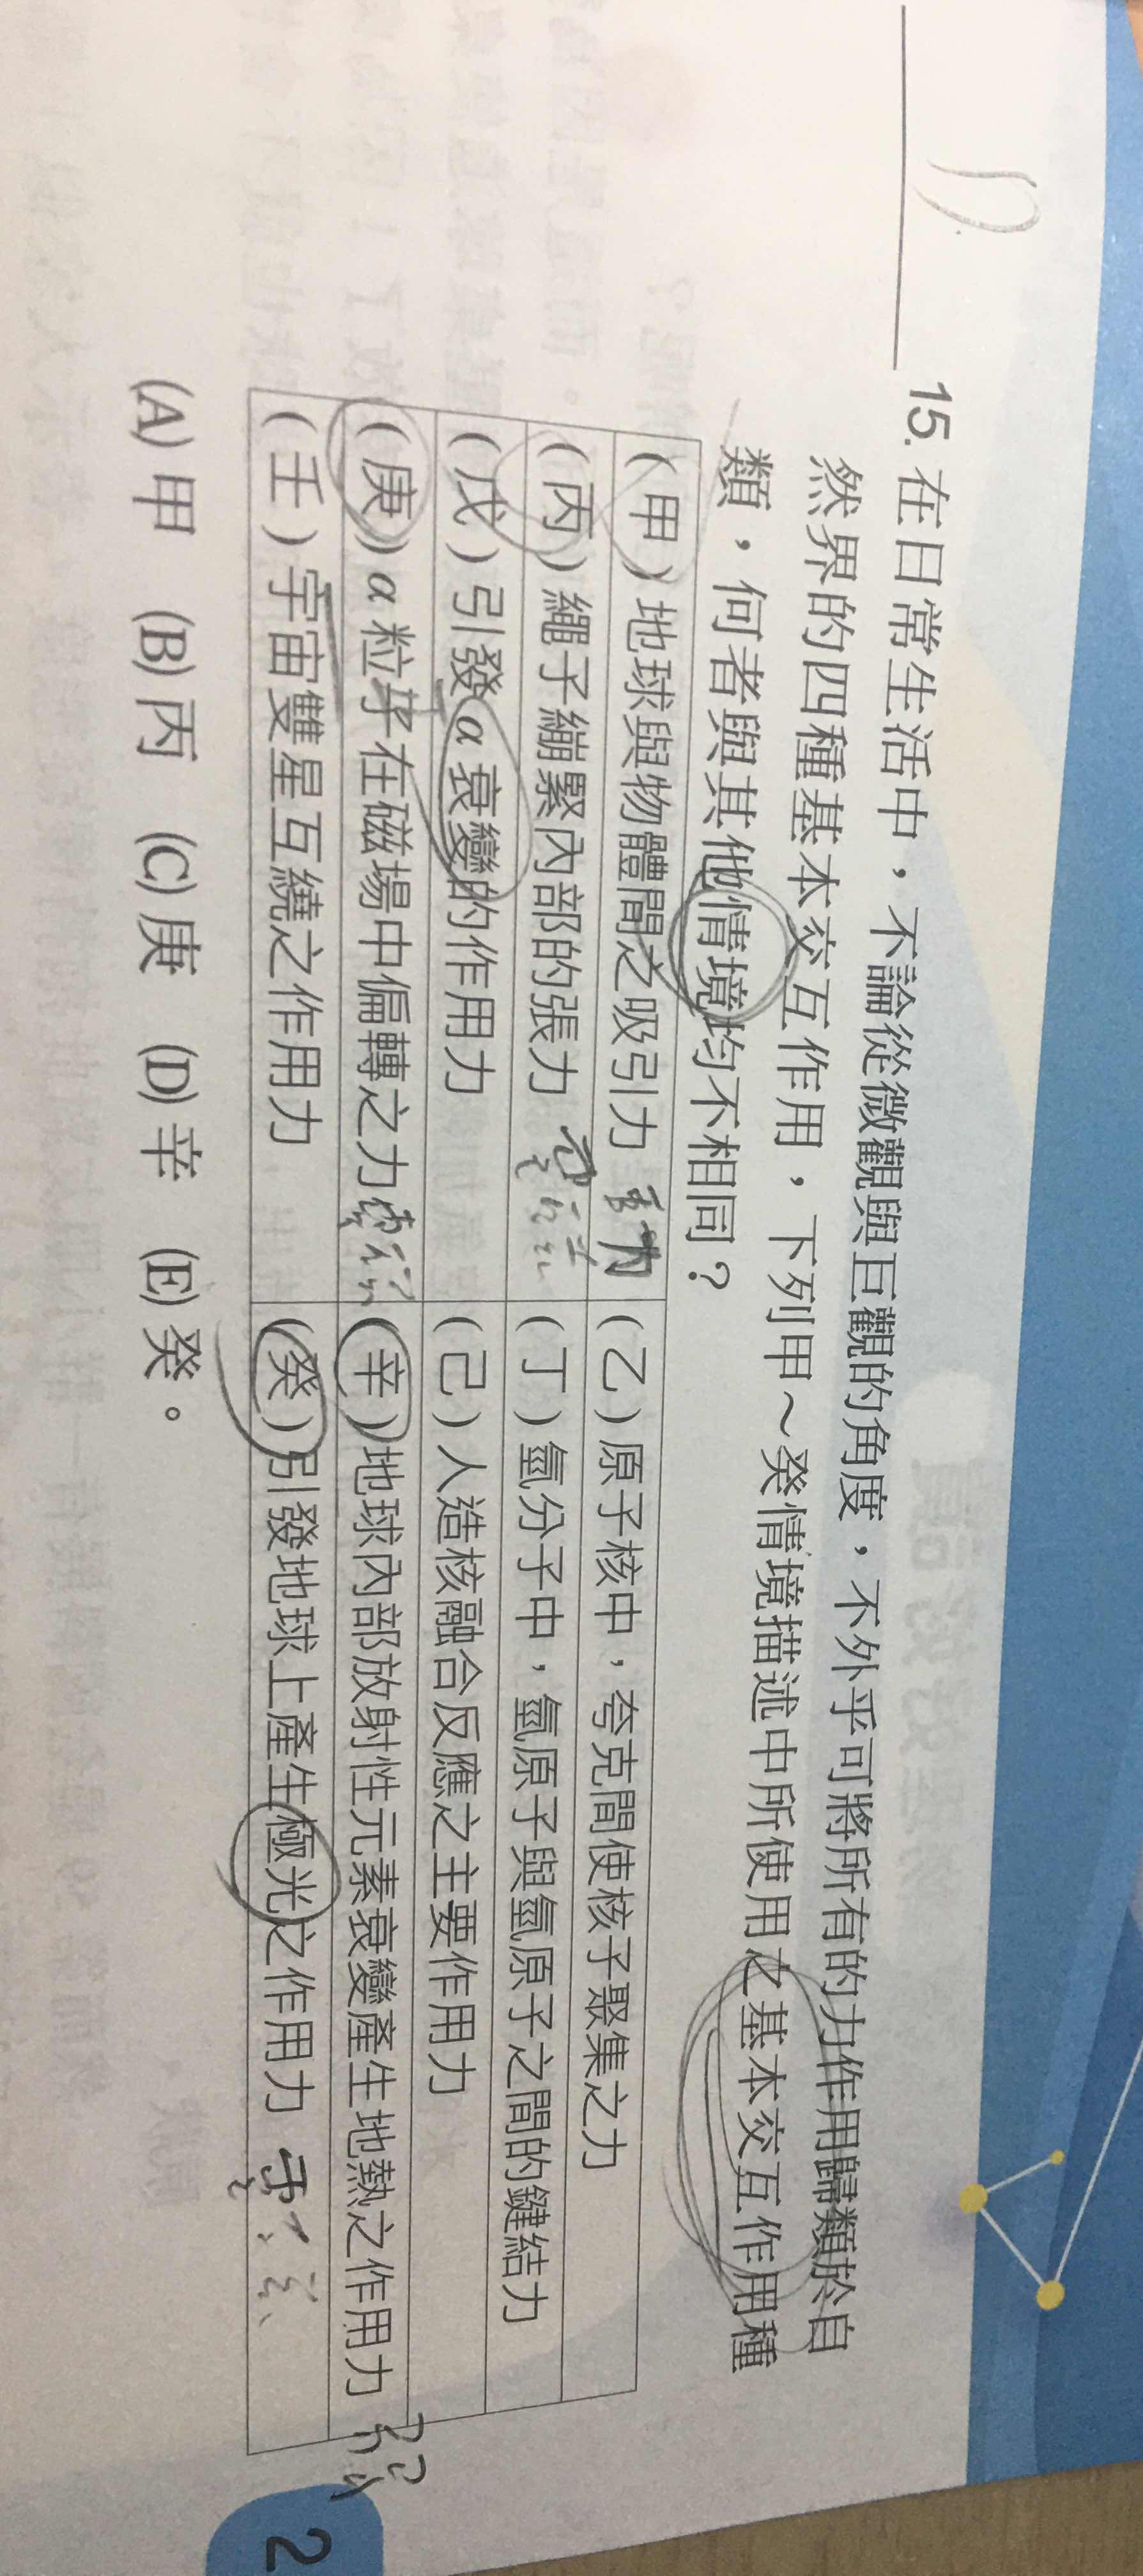 15. 在日常生活中，不論從微觀與巨觀的角度，不外乎可將所有的力作用歸類於自
然界的四種基本交互作用，下列甲～癸情境描述中所使用之基本交互作用種
類，何者與其他情境均不相同？
(甲)地球與物體間之吸引力 重力
(乙)原子核中，夸克間使核子聚集之力
(丙)繩子繃緊內部的張力
(丁)氫分子中，氫原子與氫原子之間的鍵結力
(戊)引發α衰變的作用力
(己)人造核融合反應之主要作用力
(庚)α粒子在磁場中偏轉之力
(辛)地球內部放射性元素衰變產生地熱之作用力
(壬)宇宙雙星互繞之作用力
(癸)引發地球上產生極光之作用力
(A)甲 (B)丙 (C)庚 (D)辛 (E)癸。
2